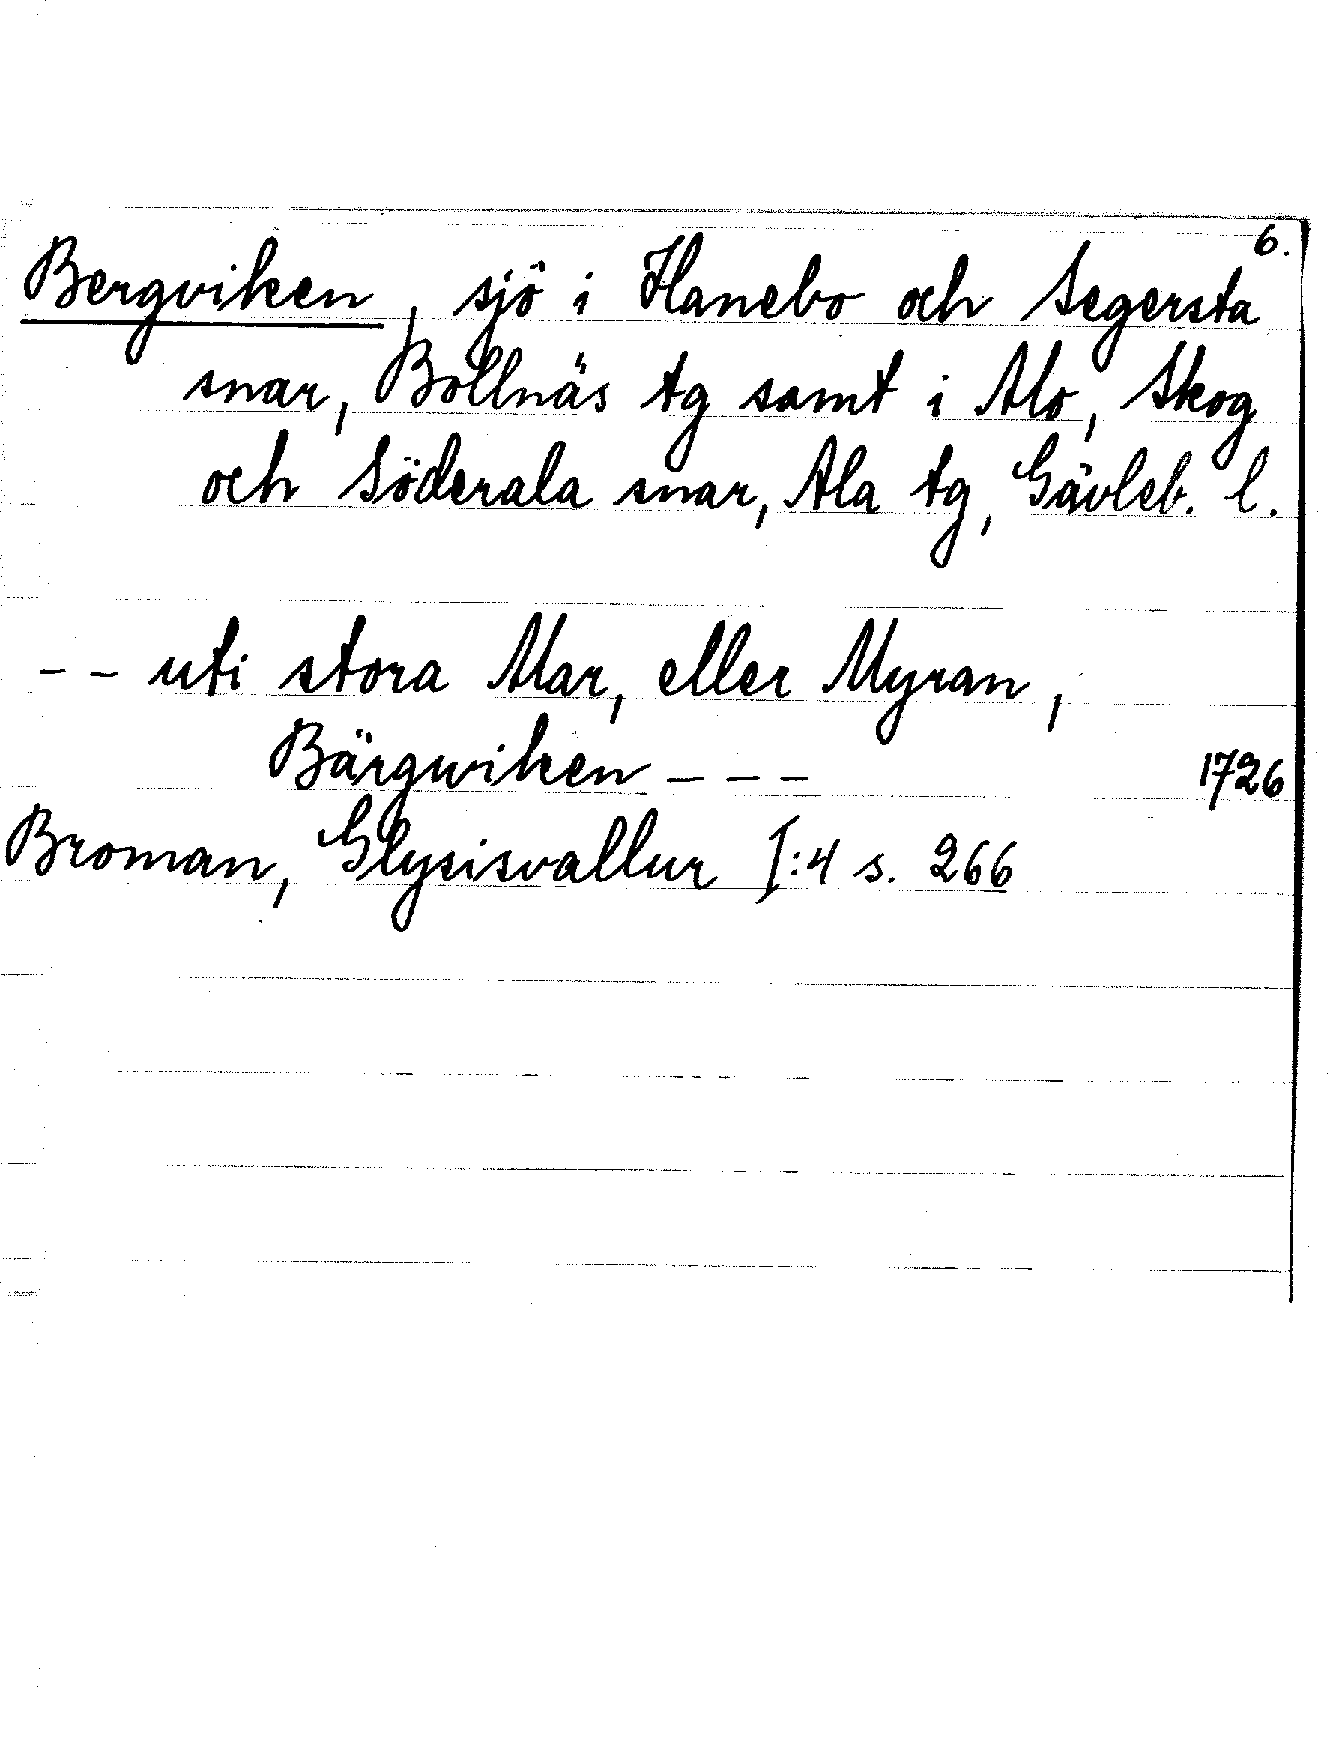 6.
Bergviken, sjö i Hanebo och Segersta
snar, Bollnäs tg samt i Mo, Skog
och Söderala snar, Ala tg, Gävleb. l.
-- uti stora Mar, eller Myran,
Bärgwiken --- 1726
Broman, Glysisvallur I:4 s. 266